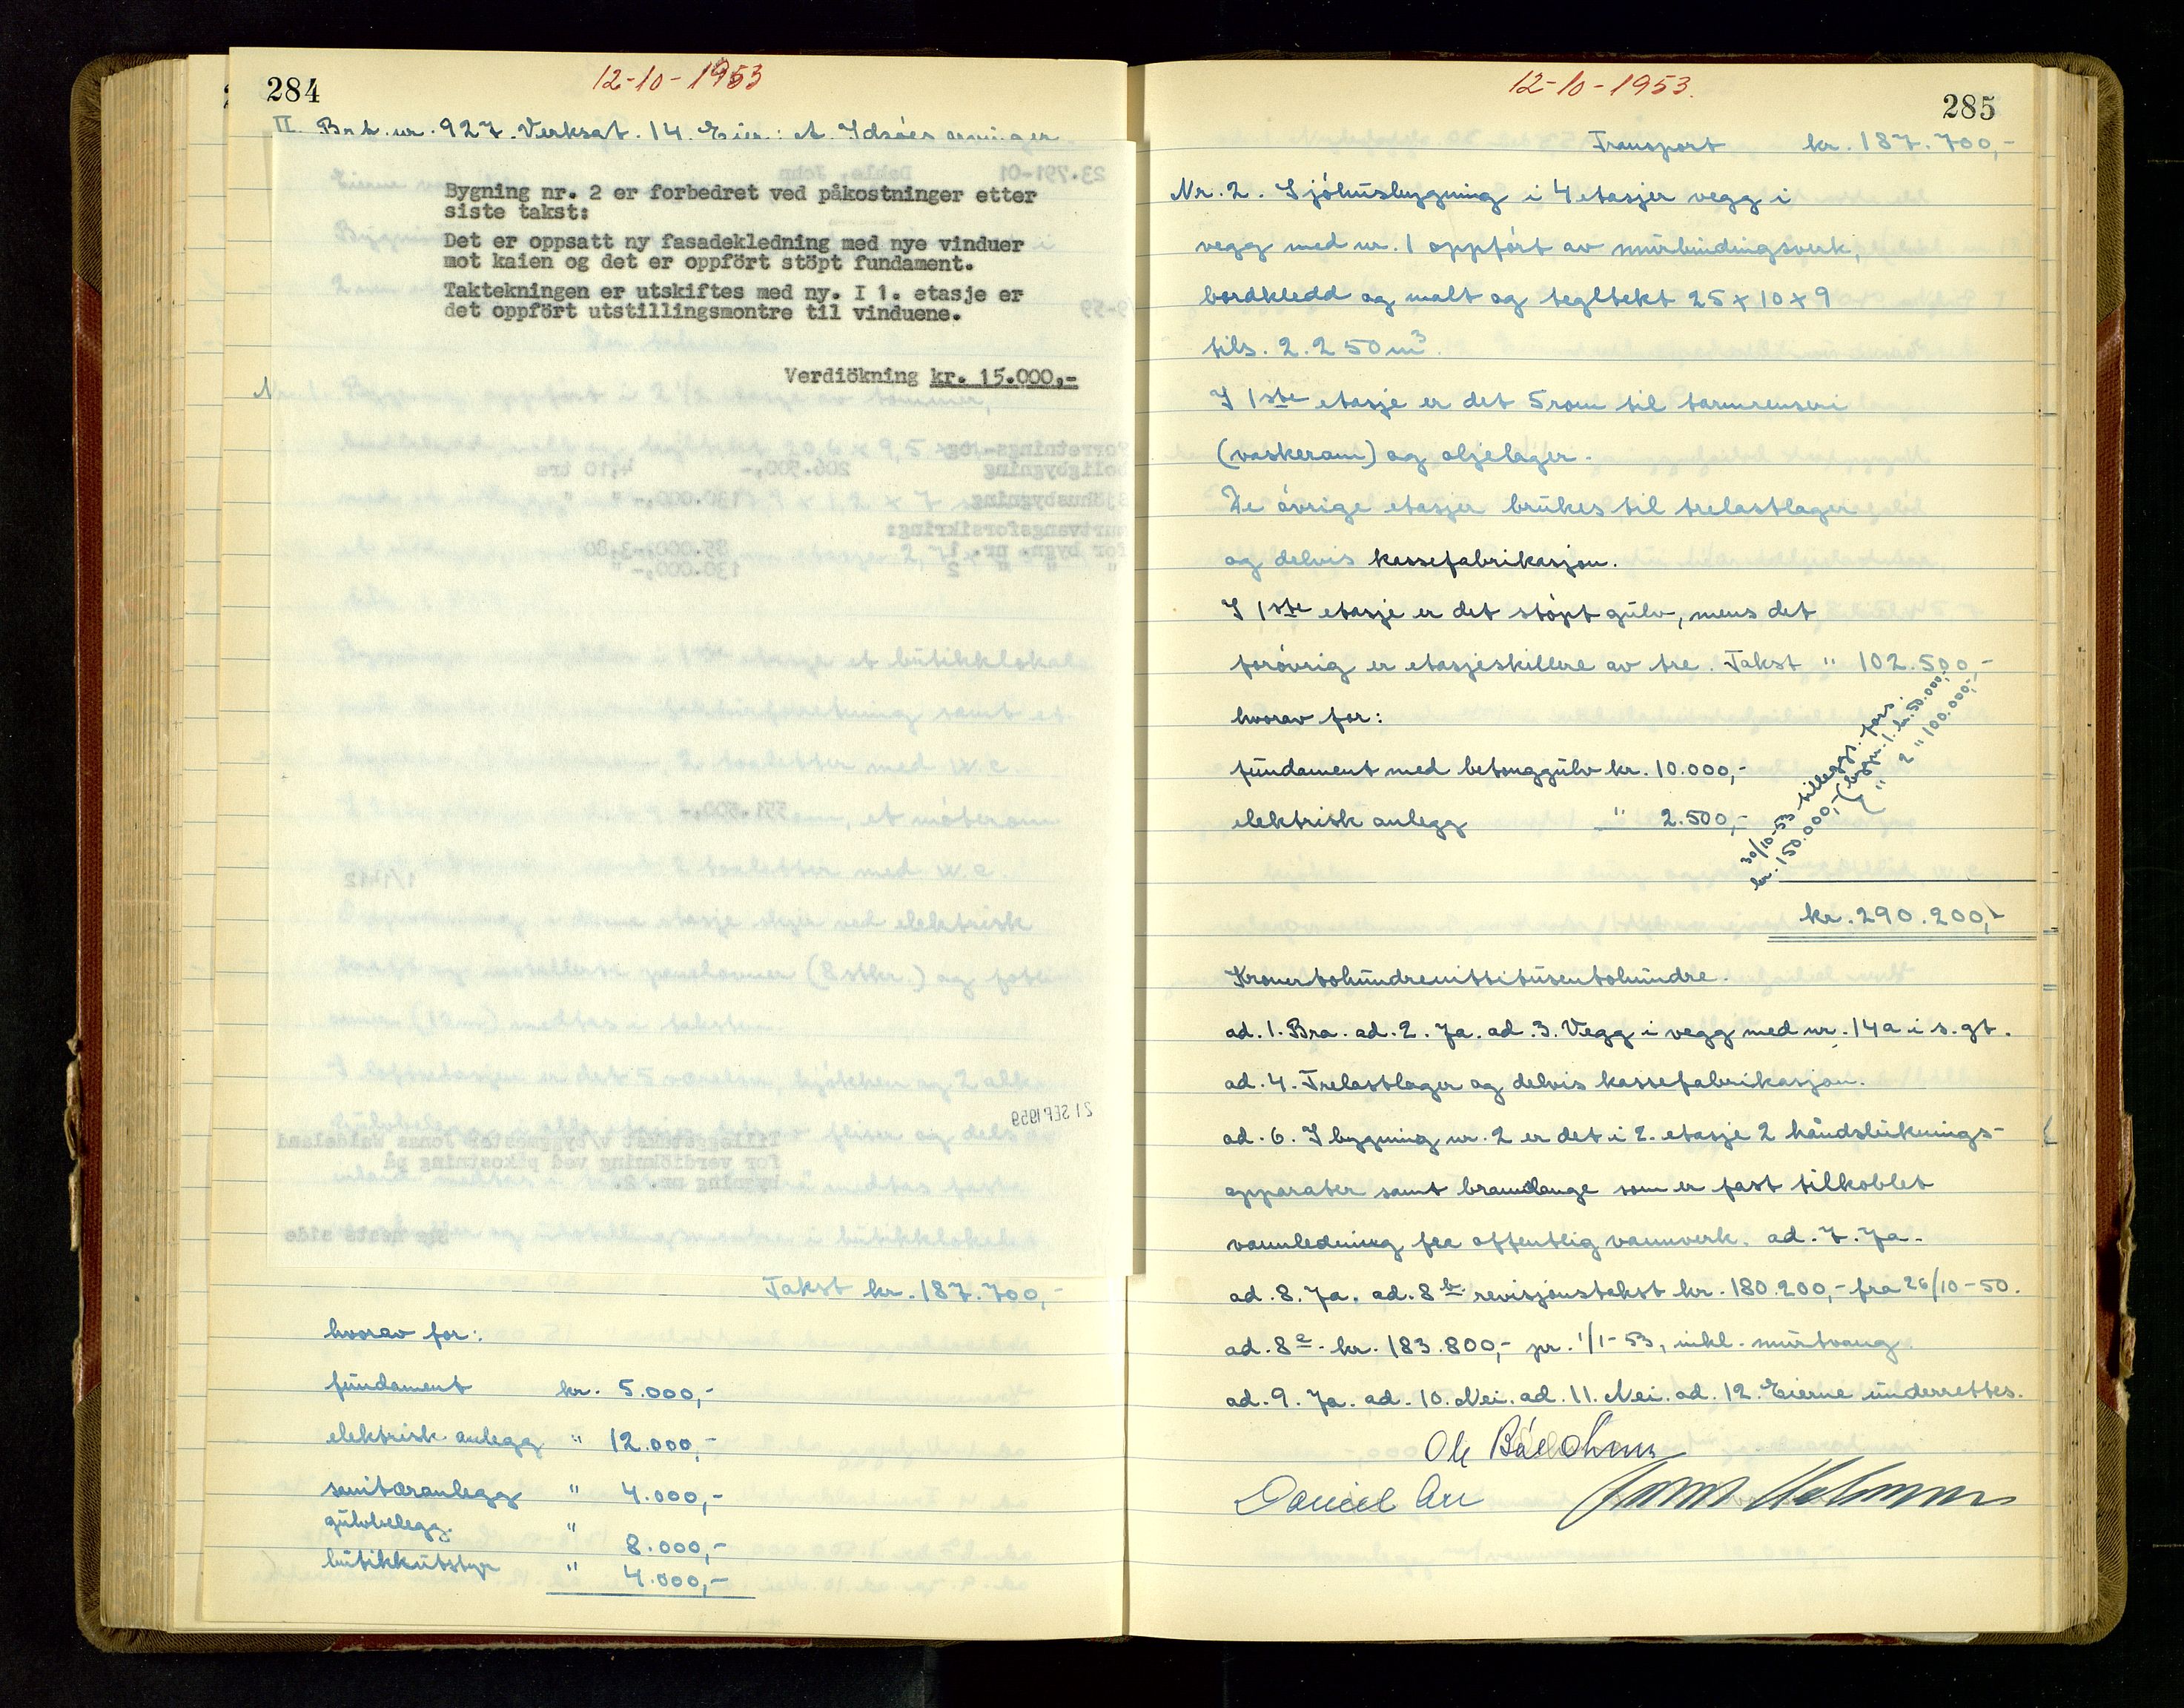 284
12-10-1953
II. Br.t. nr. 927. Verksgt. 14. Eier: A. Idsöes arvinger.
Bygning nr. 2 er forbedret ved påkostninger etter
siste takst:
Det er oppsatt ny fasadekledning med nye vinduer
mot kaien og det er oppfört stöpt fundament.
Taktekningen er utskiftes med ny. I 1. etasje er
det oppfört utstillingsmontre til vinduene.
Verdiökning kr. 15.000,-
Takst kr. 187.700,-
hvorav for:
fundament kr. 5.000,-
elektrisk anlegg " 12.000,-
sanitæranlegg " 4.000,-
gulvbelegg. " 8.000,-
butikkutstyr " 4.000,-
12-10-1953.
285
Transport kr. 187.700,-
Nr. 2. Sjöhusbygning i 4 etasjer vegg i
vegg med nr. 1 oppfört av murbindingsverk,
bordkledd og malt og tegltekt 25 x 10 x 9
tils. 2.250 m³.
I 1ste etasje er det 5 rom til tarmrenseri
(vaskerom) og oljelager.
De övrige etasjer brukes til trelastlager
og delvis kassefabrikasjon.
I 1ste etasje er det stöpt gulv, mens det
forövrig er etasjeskillere av tre. Takst " 102.500-
hvorav for:
fundament med betonggulv kr. 10.000,-
elektrisk anlegg " 2.500,-
30/10-53 tilleggs. fors.
kr. 150.000,- (bygn. 1. kr. 50.000,-
" 2 " 100.000,-
kr. 290.200,-
Kronertohundrenittitusentohundre.
ad. 1. Bra. ad. 2. Ja. ad. 3. Vegg i vegg med nr. 14a i s. gt.
ad. 4. Trelastlager og delvis kassefabrikasjon.
ad. 6. I bygning nr. 2 er det i 2. etasje 2 håndslukнings-
apparater samt brandlange som er fast tilkoblet
vannledning fra offentlig vannverk. ad. 7. Ja.
ad. 8. Ja. ad. 8b revisjonstakst kr. 180.200,- fra 26/10-50.
ad. 8c. kr. 183.800,- pr. 1/1-53, inkl. murtvang
ad. 9. Ja. ad. 10. Nei. ad. 11. Nei. ad. 12. Eierne underrettes.
Daniel